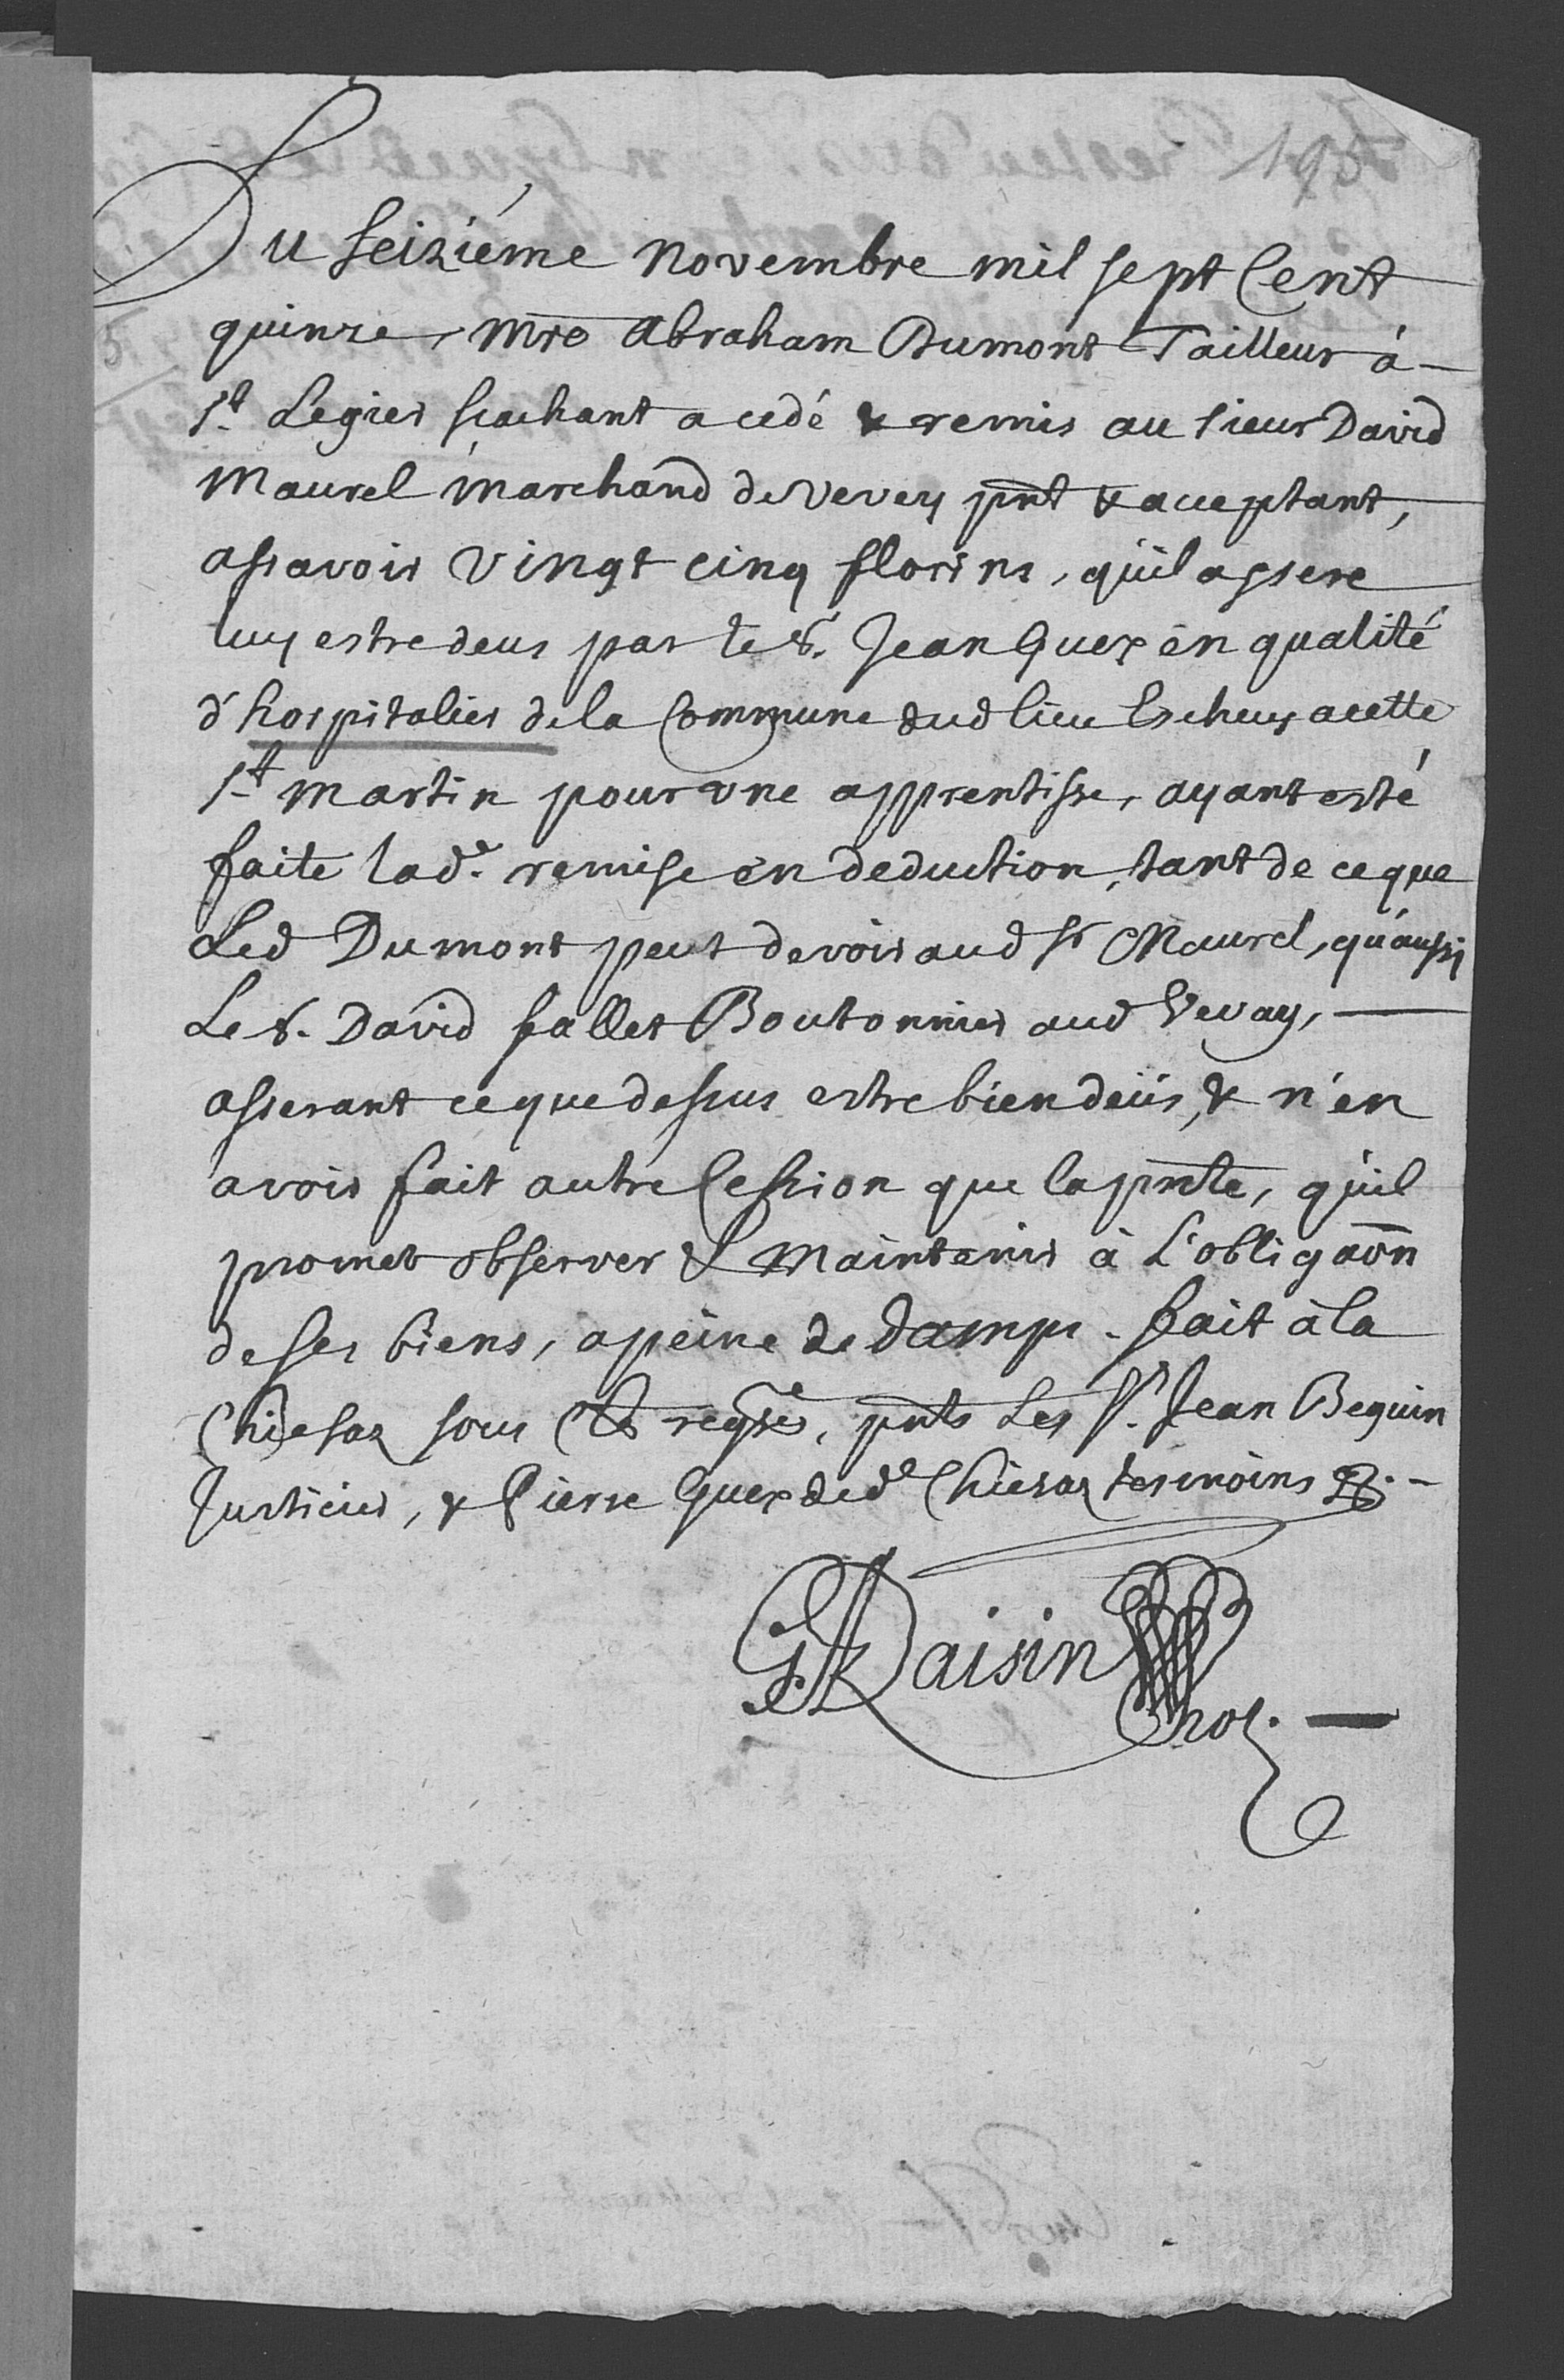 195
Du seiziéme novembre mil sept Cent
quinze, Mre Abraham Dumont Tailleur à
St. Legier scachant a cedé & remis au sieur David
Maurel marchand de Vevey pnt & acceptant,
assavoir vingt cinq florins, qu'il assere
luy estre deus par le S. Jean Guex en qualité
d'hospitalier de la Commune dud lieu Escheus a cette
St. Martin pour une apprentisse, ayant esté
faite lad.e remise en deduction, tant de ce que
Led Dumont peut devoir aud Sr Maurel, qu'aussi
Le S. David fallet Boutonnier aud Vevay,
asserant ce que dessus estre bien deüs, & n'en
avoir fait autre Cession que la pnte, qu'il
promet observer & maintenir à L'obligaõn
de ses biens, a peine de damps. fait à la
Chiesaz sous &c regres, pnts Les Srs. Jean Beguin
Justicier, & Pierre Guex de de Chiesaz tesmoins &c.
G Raisin
not.